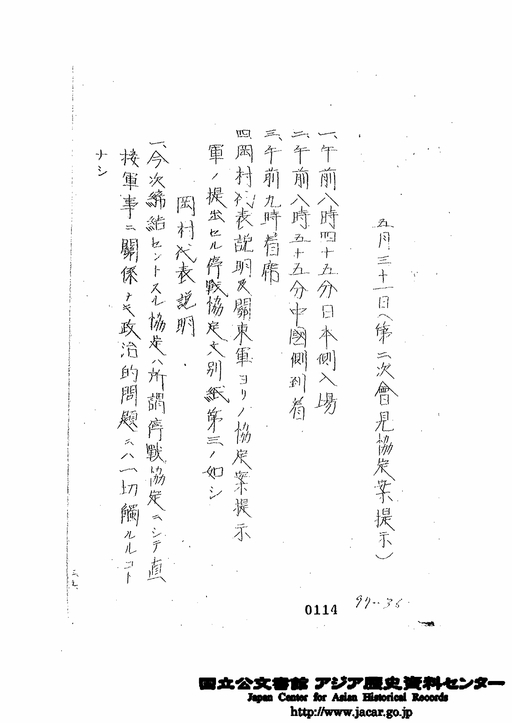 五月三十一日(第二次會見協定案提示)
一、午前八時四十五分日本側入場
二、午前八時五十五分中國側到着
三、午前九時着席
四、岡村代表説明及關東軍ヨリノ協定案提示
軍ノ提出セル停戰協定文別紙第三ノ如シ
岡村代表説明
一、今次締結セントスル協定ハ所謂停戰協定ニシテ直
接軍事ニ關係ナキ政治的問題ニハ一切觸ルルコト
ナシ
0114
国立公文書館 アジア歴史資料センター
Japan Center for Asian Historical Records
http://www.jacar.go.jp